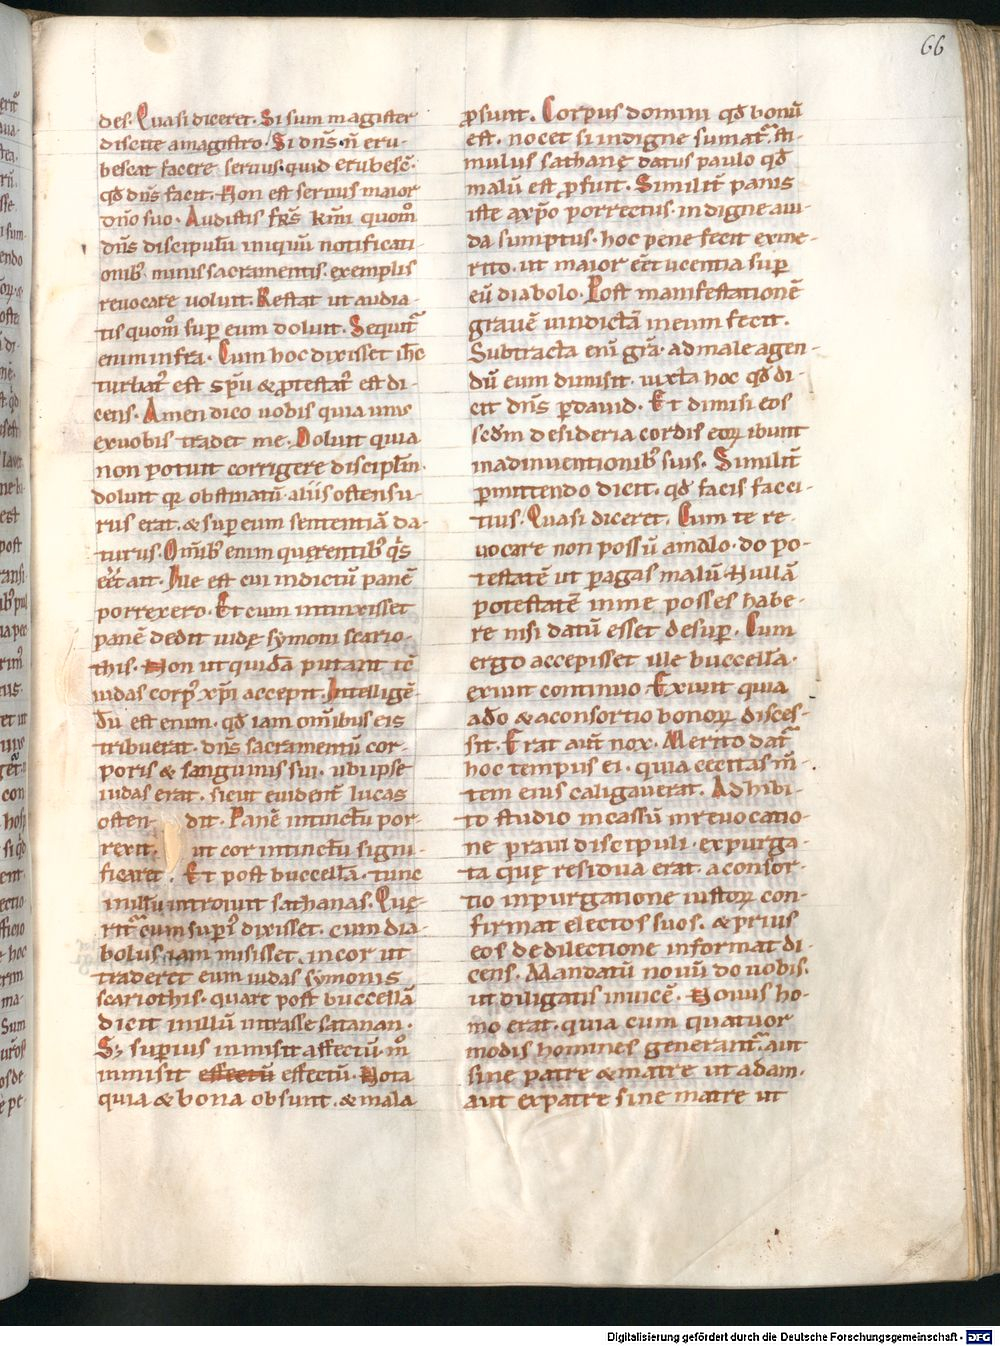 66
des. Quasi diceret. Si sum magister
discite a magistro. Si dn̄s n̄ eru-
bescat facere seruus. quid erubescē.
qđ dn̄s facit. Non est seruus maior
dn̄o suo. Audistis fr̄s km̄i quom̊
dn̄s discipulū iniquū notificati-
onib; minis sacramentis. exemplis
reuocare uoluit. Restat ut audia-
tis quom̊ sup eum doluit. Sequit̄
enim infra. Cum hoc dixisset ih̄c
turbat̄ est sp̄u & ꝓtestat̄ est di-
cens. Amen dico uobis quia unus
ex uobis tradet me. Doluit quia
non potuit corrigere disciplm̄.
doluit qꝛ obstinatū aliis ostensu-
rus erat. & sup eum sententiā da-
turus. Om̄ib; enim querentib; q̄s
eēt ait. Ille est cui intinctū panē
porrexero. Et cum intinxisset
panē dedit iudę symoni scario-
this. Non ut quidā putant tc̄
iudas corp; xp̄i accepit. Intelligē-
dū est enim. qđ iam om̄ibus eis
tribuerat. dn̄s sacramentū cor-
poris & sanguinis sui. ubi ipse
iudas erat. sicut euident̄ lucas
osten- dit. Panē intinctū por-
rexit. ut cor intinctū signi-
ficaret. Et post buccellā. tunc
in illū introiuit sathanas. Quę-
rit̄ cum sup̄i dixisset. cum dia-
bolus iam misisset. in cor ut
traderet eum iudas symonis
scariothis. quare post buccellā
dicit in illū intrasse satanan.
Sꝫ superius inmisit affectū. m̊
inmisit effectū effectū. Nota
quia & bona obsunt. & mala
ꝓsunt. Corpus domini qđ bonū
est. nocet si indigne sumat̄. sti-
mulus sathanę datus paulo qđ
malū est ꝓfuit. Similit̄ panis
iste a xp̄o porrectus. indigne a iu-
da sumptus. hoc pene fecit ex me-
rito. ut maior eēt licentia sup
eū diabolo. Post manifestationē
grauē uindictā in eum fecit.
Subtracta enī gr̄a. ad male agen-
dū eum dimisit. iuxta hoc qđ di-
cit dn̄s ꝑ dauid. Et dimisi eos
scdm̄ desideria cordis eoꝝ ibunt
in adinuentionib; suis. Similit̄
ꝑmittendo dicit. qđ facis faci-
tius. Quasi diceret. Cum te re-
uocare non possū a malo. do po-
testatē ut ꝑagas malū. Nullā
potestatē in me posses habe-
re nisi datū esset desup. Cum
ergo accepisset ille buccellā.
exiuit continuo. Exiuit quia
a dō & a consortio bonoꝝ disces-
sit. Erat aut̄ nox. Merito dat̄
hoc tempus ei. quia cecitas m̄-
tem eius caligauerat. Adhibi-
to studio in cassū in reuocatio-
ne praui discipuli. expurga-
ta quę residua erat. a consor-
tio in purgatione iustoꝝ con-
firmat electos suos. & prius
eos de dilectione informat di-
cens. Mandatū nouū do uobis.
ut diligatis inuicē. Nouus ho-
mo erat. quia cum quatuor
modis homines generant̄. aut
sine patre & matre ut adam.
aut ex patre sine matre ut
Digitalisierung gefördert durch die Deutsche Forschungsgemeinschaft - DFG